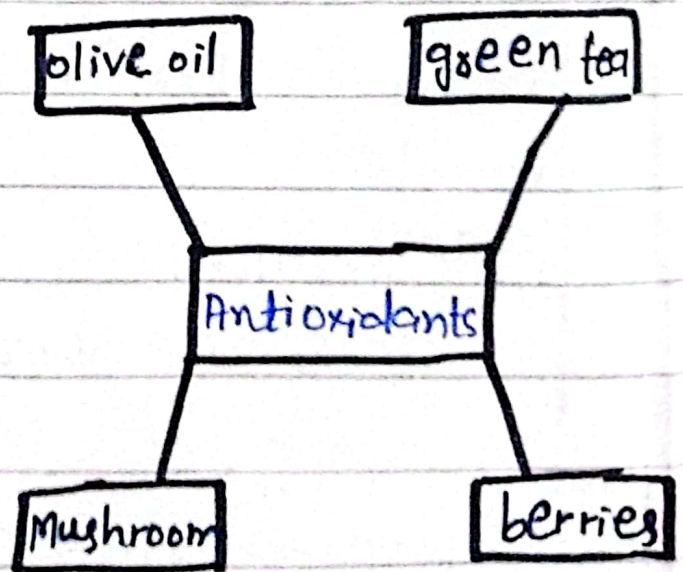 olive oil
green tea
Antioxidants
Mushroom
berries